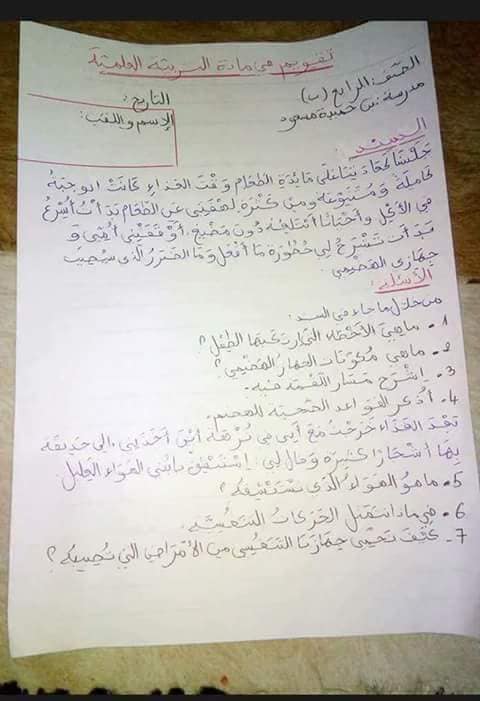 تقويم في مادة التربية العلمية
الصف: الرابع (ب)
مدرسة: بن حميدة مسعود
التاريخ:
الاسم واللقب:
السند:
جَلَسْنَا كَعَادَتِنَا عَلَى مَائِدَةِ الطَّعَامِ وَقْتَ الغَدَاءِ كَانَتْ الوَجْبَةُ
كَامِلَةً وَ مُتَنَوِّعَة وَمِنْ كَثْرَةِ لَهْفَتِي عَنِ الطَّعَامِ بَدَأْتُ أُسْرِعُ
فِي الأَكْلِ وَأَحْيَانًا أَبْتَلِعُهُ دُونَ مَضْغٍ، أَوْقَفَتْنِي أُمِّي وَ
بَدَأَتْ تَشْرَحُ لِي خُطُورَةَ مَا أَفْعَل وَمَا الضَّرَرُ الَّذِي سَيُصِيبُ
جِهَازِي الهَضْمِي.
الأسئلة:
من خلال ما جاء في السند:
1- ماهي الأخطاء التي ارتكبها الطفل؟
2- ماهي مكونات الجهاز الهضمي؟
3- اشرح مسار اللقمة فيه.
4- أذكر القواعد الصحية للهضم.
بَعْدَ الغَدَاءِ خَرَجْتُ مَعَ أَبِي فِي نُزْهَة أَيْنَ أَخَذَنِي إلى حديقة
بِهَا أَشْجَارًا كَثِيرَة وَقال لي: إسْتَنْشِقْ يا بُنَي الهَوَاء العَلِيل.
5- ماهو الهواءُ الذي نستنشقه؟
6- في ماذا تتمثل الحركات التنفسية.
7- كَيْفَ نَحْمِي جِهَازَنَا التَّنَفُّسِي مِنَ الأَمْرَاضِ التي تُصِيبُهُ؟